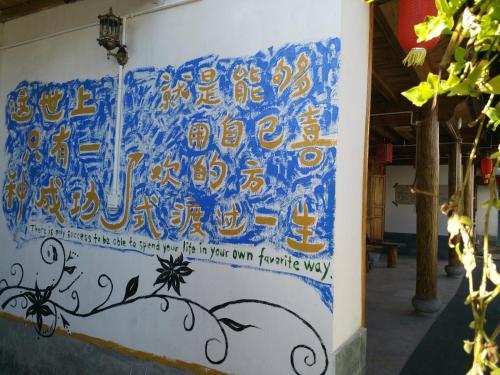 这世上
只有一
种成功
就是能够
用自己喜
欢的方
式渡过一生
There is only success to be able to spend your life in your own favorite way.